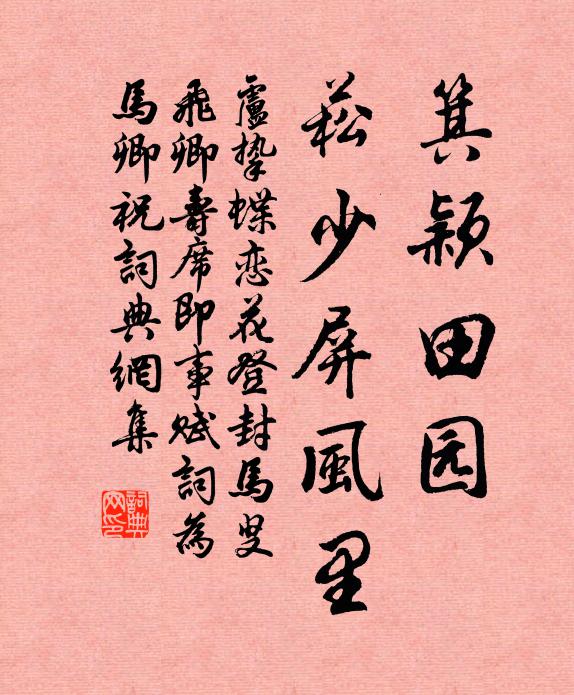 箕颍田园
菘少屏風里
盧摯蝶恋花登封馬叟
飛卿壽席即事賦詞為
馬卿祝詞典網集
詞典网印